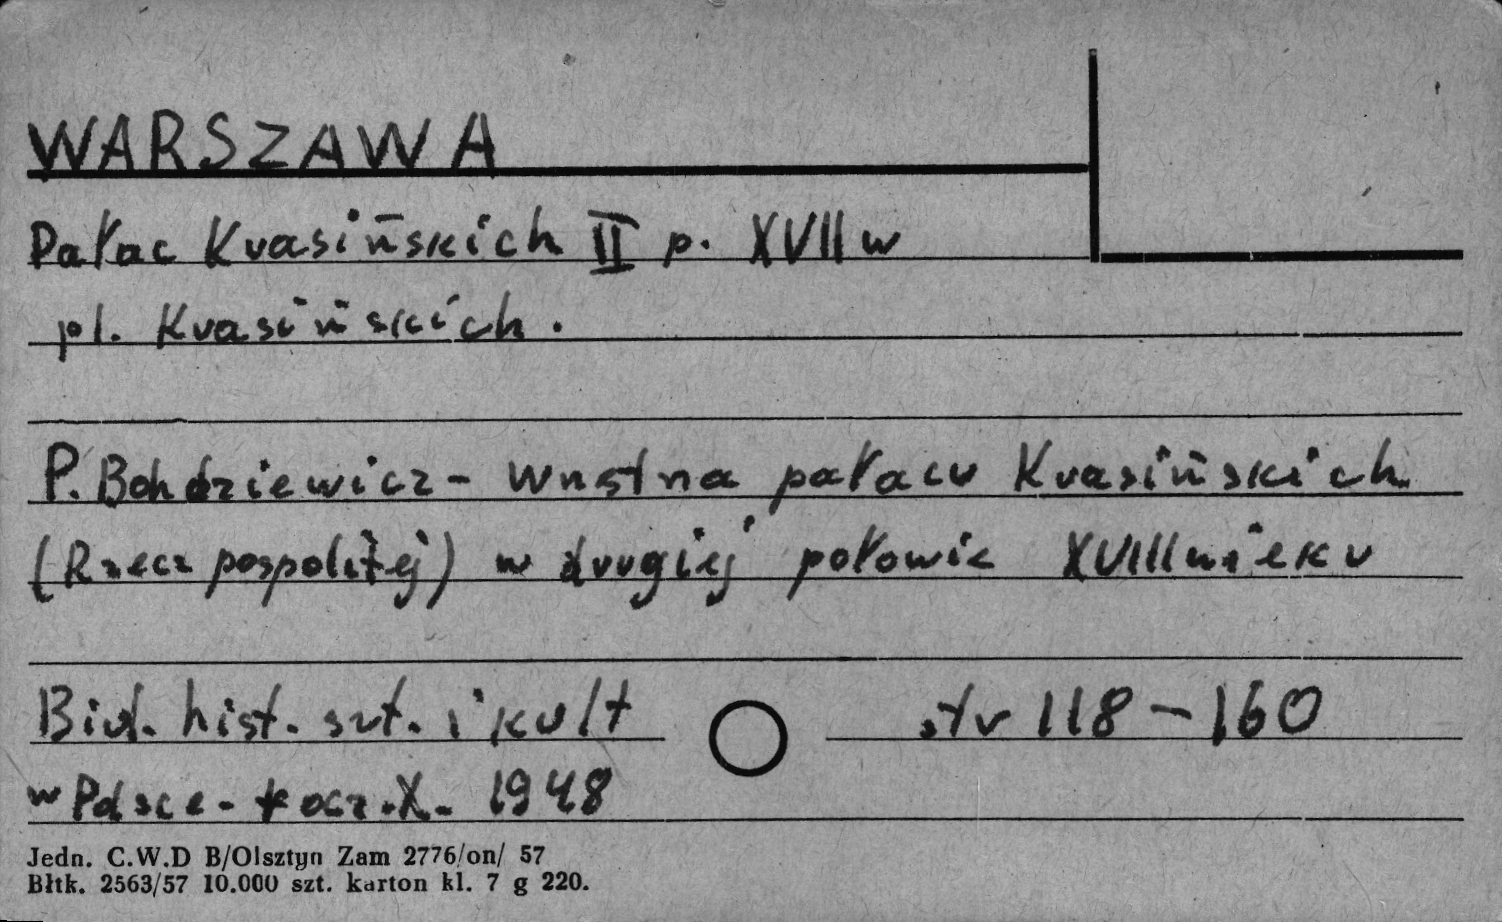 WARSZAWA
Pałac Krasińskich II p. XVII w
pl. Krasińskich.
P. Bohdziewicz - Wnętrza pałacu Krasińskich
(Rzeczpospolitej) w drugiej połowie XVIII wieku
Biul. hist. szt. i kult str 118 - 160
w Polsce - rocz. X. 1948
Jedn. C.W.D B/Olsztyn Zam 2776/on/ 57
Błtk. 2563/57 10.000 szt. karton kl. 7 g 220.